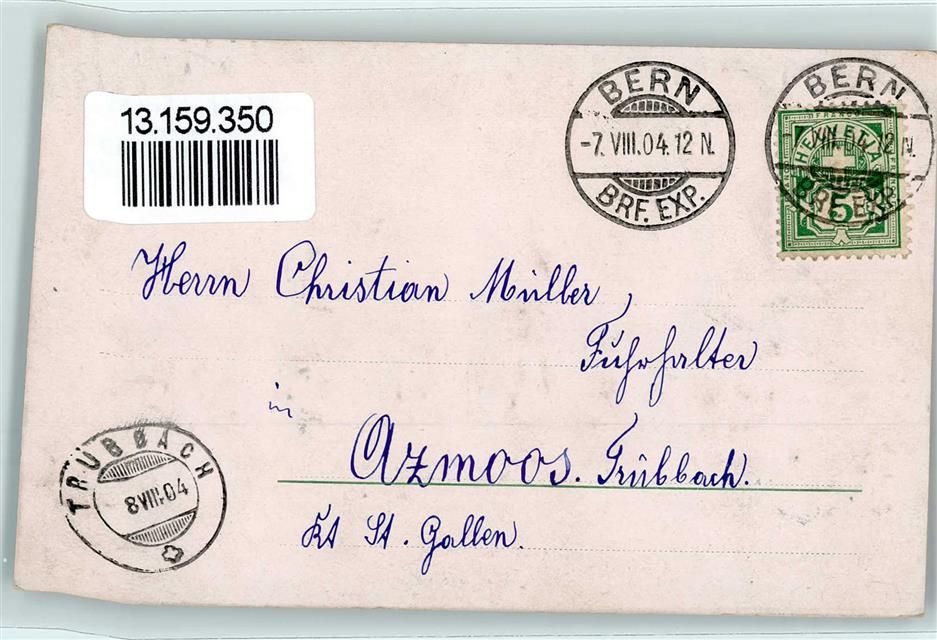 13.159.350
BERN
-7. VIII. 04. 12 N.
BRF. EXP.
BERN
VIII. 04. 12 N.
BRF. EXP.
FRANCO
HELVETIA
5
Herrn Christian Müller,
Fuhrhalter
in
Azmoos. Trübbach.
Kt St. Gallen.
TRÜBBACH
8 VIII. 04